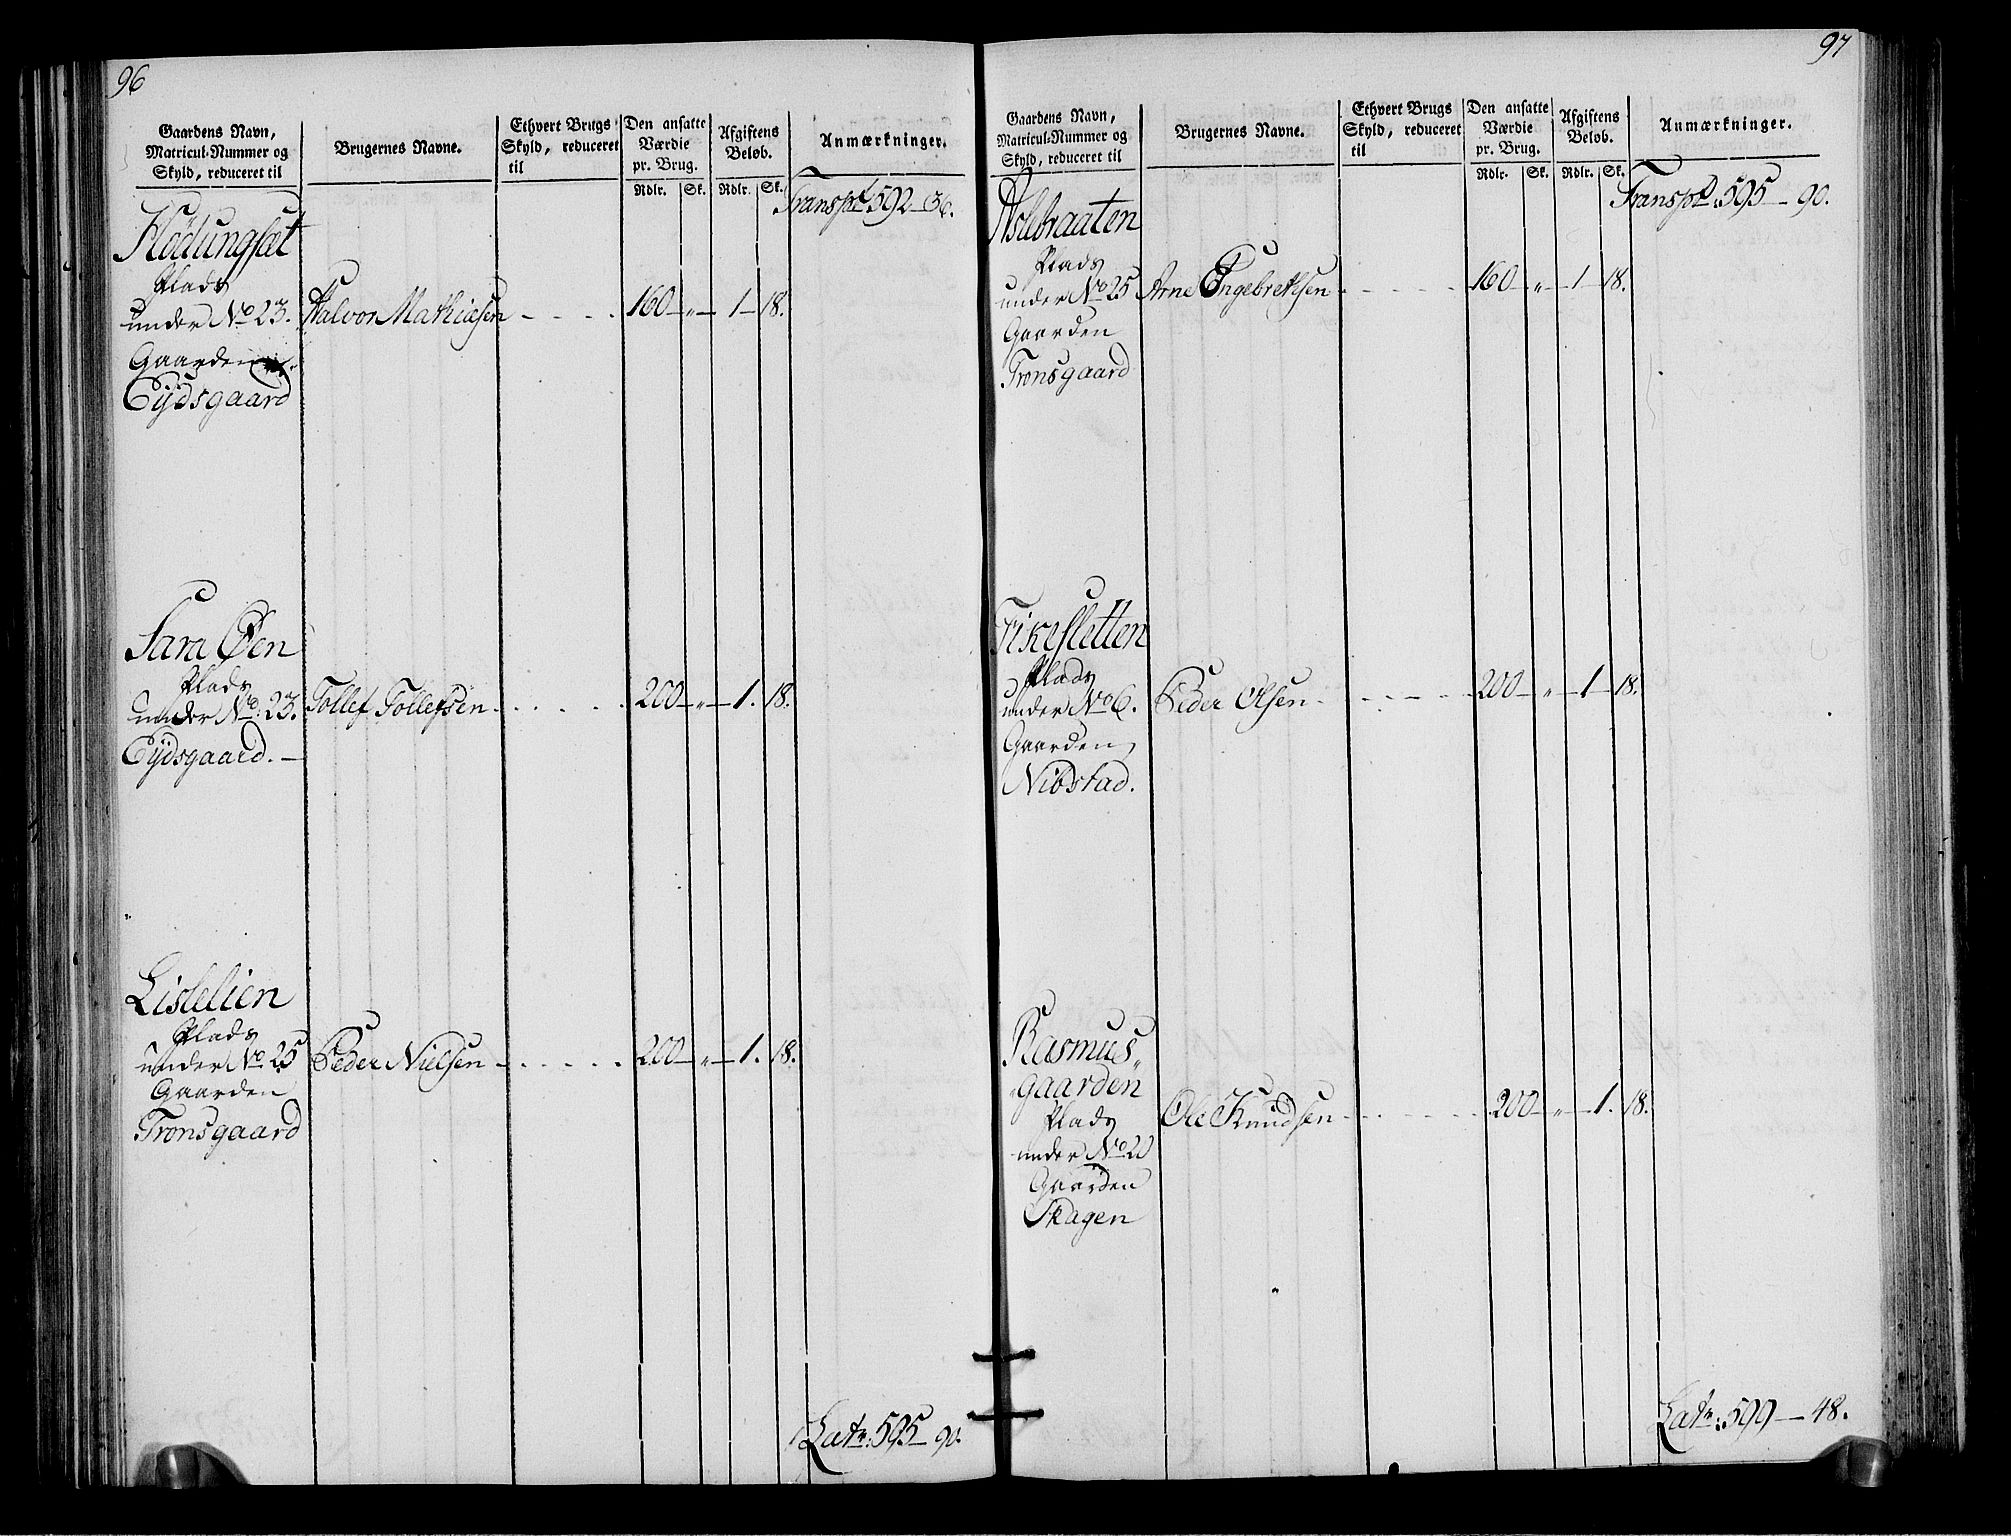 96
Gaardens Navn,
Matricul-Nummer og
Skyld, reduceret til
Brugernes Navne.
Ethvert Brugs
Skyld, reduceret
til
Den ansatte
Værdie
pr. Brug.
Afgiftens
Beløb.
Anmærkninger.
Rdlr. Sk. Rdlr. Sk.
Transpt 592 - 36.
Flödungsæt
Plads
under No 23. Halvor Mathiesen - - - - 160 - " - 1 - 18.
Gaarden
Eijdsgaard
Sara Øen
Plads
under No: 23. Tollef Tollefsen - - - - - 200 - " - 1. 18.
Eijdsgaard. -
Lislelien
Plads
under No 25 Peder Nielsen - - - - - 200 - " - 1. 18.
Gaarden
Tronsgaard
Latr: 595 - 90.
97
Gaardens Navn,
Matricul-Nummer og
Skyld, reduceret til
Brugernes Navne.
Ethvert Brugs
Skyld, reduceret
til
Den ansatte
Værdie
pr. Brug.
Afgiftens
Beløb.
Anmærkninger.
Rdlr. Sk. Rdlr. Sk.
Transpt: 595 - 90.
Aslebraaten
Plads
under No 25 Arne Engebretsen - - - - - 160 - " - 1 - 18.
Gaarden
Tronsgaard
Fikesletten
Plads
under No 6. Peder Olsen - - - - - 200 - " - 1 - 18.
Gaarden
Nibstad.
Rasmus"
gaarden
Plads
under No 20 Ole Knudsen - - - - - 200 - " - 1. 18.
Gaarden
Skagen
Latr: 599 - 48.